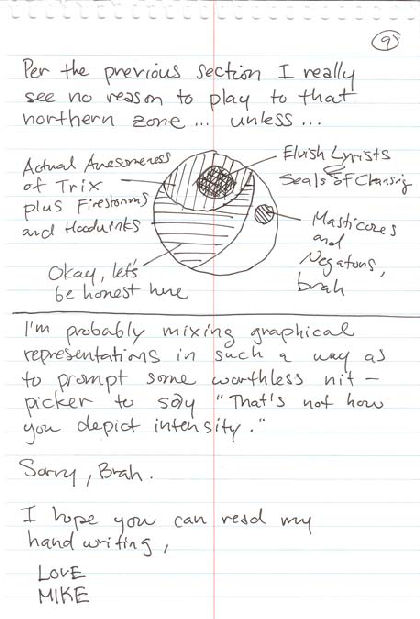 9
Per the previous section I really
see no reason to play to that
northern zone... unless...
Actual Awesomeness
of Trix
plus Firestorms
and Hoodwinks
Elvish Lyrists
&
Seals of Cleansing
Masticores
and
Negators,
brah
Okay, let's
be honest here
I'm probably mixing graphical
representations in such a way as
to prompt some worthless nit-
picker to say "That's not how
you depict intensity."
Sorry, Brah.
I hope you can read my
handwriting,
LOVE
MIKE